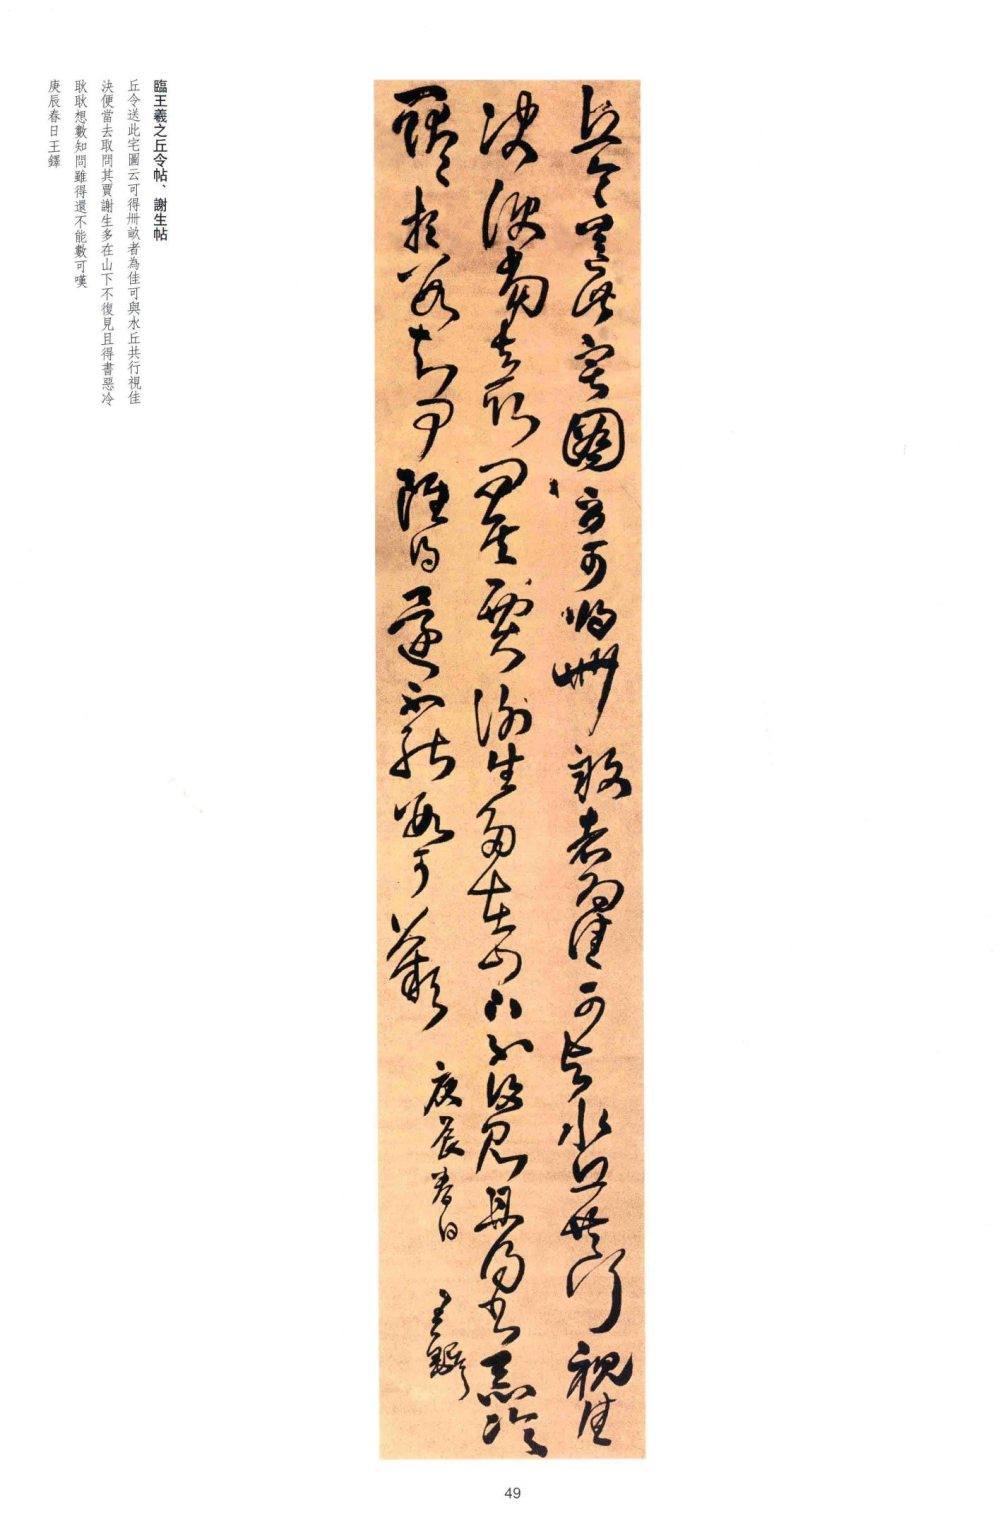 丘令送此宅圖云可得卌畝者為佳可與水丘共行視佳
決便當去取問其賈謝生多在山下不復見且得書惡冷
耿耿想數知問雖得還不能數可嘆
庚辰春日王鐸
臨王羲之丘令帖、謝生帖
丘令送此宅圖云可得卌畝者為佳可與水丘共行視佳
決便當去取問其賈謝生多在山下不復見且得書惡冷
耿耿想數知問雖得還不能數可嘆
庚辰春日王鐸
49